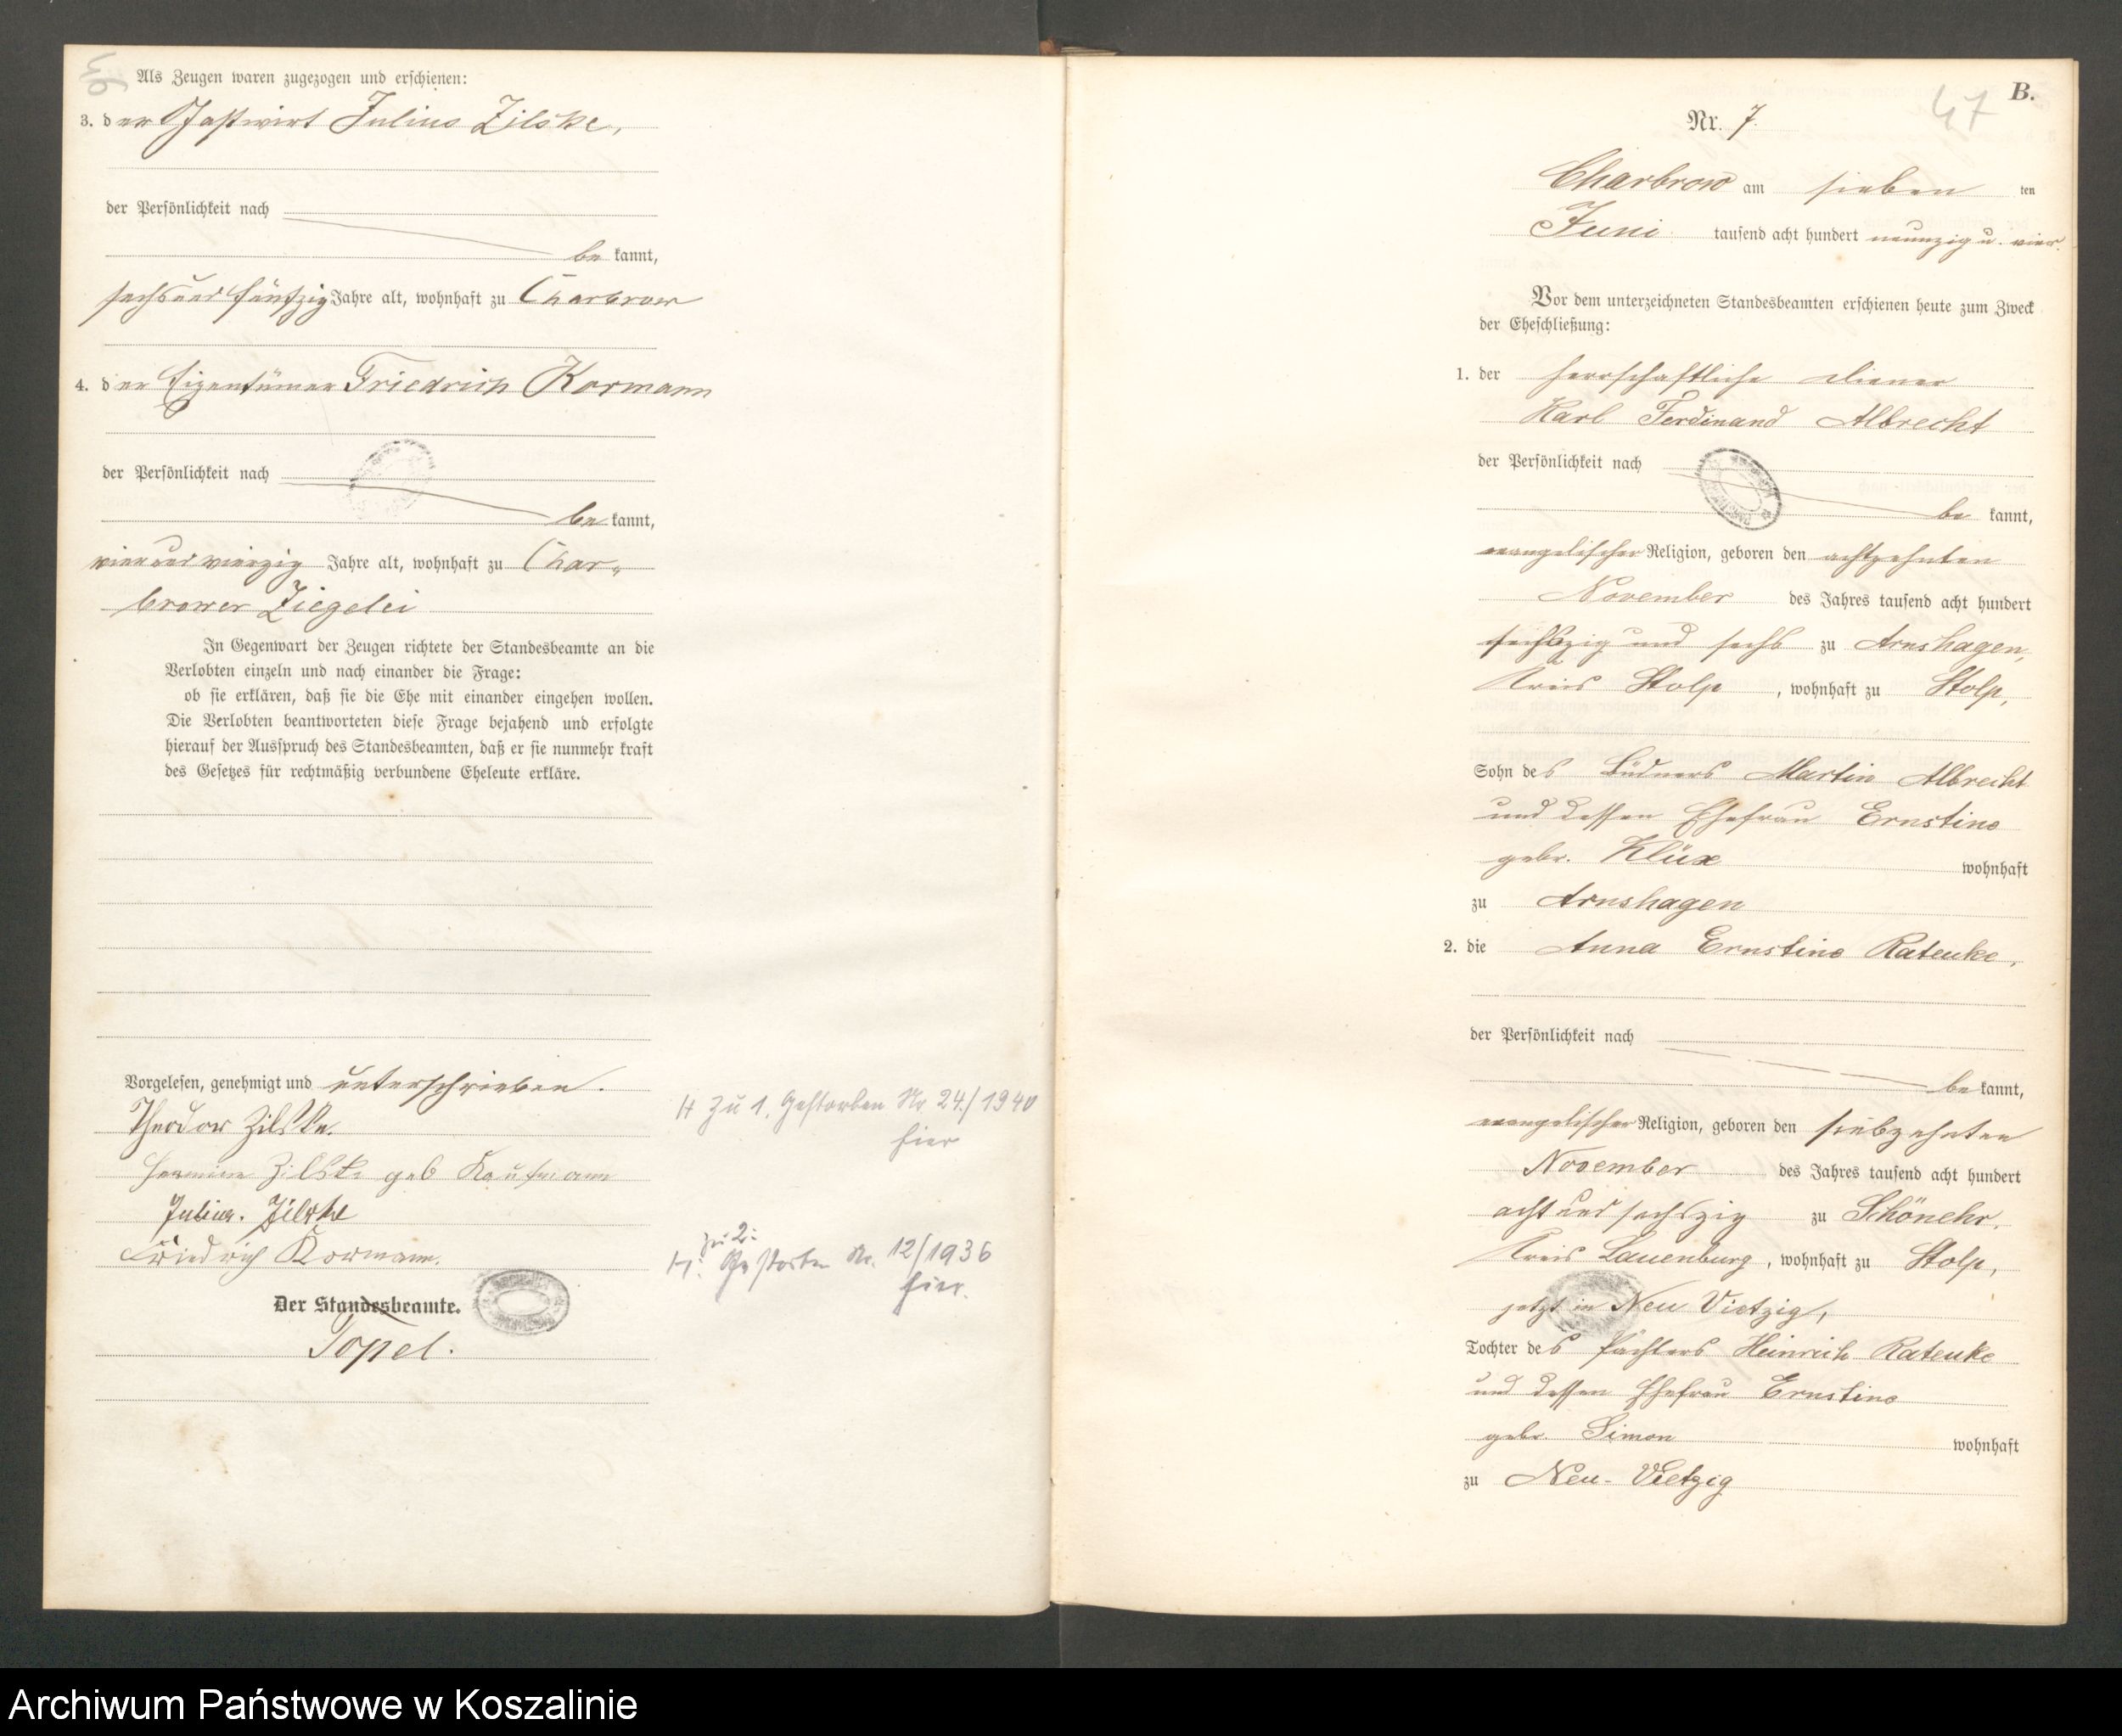 Als Zeugen waren zugezogen und erschienen:
3. der Gastwirt Julius Zilske,
der Persönlichkeit nach
be kannt,
sechsund fünfzig Jahre alt, wohnhaft zu Charbrow
4. der Eigentümer Friedrich Kormann
der Persönlichkeit nach
be kannt,
vierund vierzig Jahre alt, wohnhaft zu Char-
brower Ziegelei
In Gegenwart der Zeugen richtete der Standesbeamte an die
Verlobten einzeln und nach einander die Frage:
ob sie erklären, daß sie die Ehe mit einander eingehen wollen.
Die Verlobten beantworteten diese Frage bejahend und erfolgte
hierauf der Ausspruch des Standesbeamten, daß er sie nunmehr kraft
des Gesetzes für rechtmäßig verbundene Eheleute erkläre.
Vorgelesen, genehmigt und unterschrieben.
Theodor Zilske.
Hermine Zilske geb Kaufmann
Julius. Zilske
Friedrich Kormann.
Der Standesbeamte.
Topel.
H zu 1. Gestorben Nr 24./1940
hier
zu 2:
H. Gestorben Nr. 12/1936
hier.
47
B.
Nr. 7.
Charbrow am sieben ten
Juni tausend acht hundert neunzig u. vier.
Vor dem unterzeichneten Standesbeamten erschienen heute zum Zweck
der Eheschließung:
1. der herrschaftliche Diener
Karl Ferdinand Albrecht
der Persönlichkeit nach
be kannt,
evangelischer Religion, geboren den achtzehnten
November des Jahres tausend acht hundert
sechszig und sechs zu Arnshagen,
Kreis Stolp, wohnhaft zu Stolp,
Sohn des Büdners Martin Albrecht
und dessen Ehefrau Ernstine
gebr. Klüx wohnhaft
zu Arnshagen
2. die Anna Ernstine Ratenke,
der Persönlichkeit nach
be kannt,
evangelischer Religion, geboren den siebzehnten
November des Jahres tausend acht hundert
acht und sechszig zu Schönehr,
Kreis Lauenburg, wohnhaft zu Stolp,
jetzt in Neu Vietzig,
Tochter des Pächters Heinrich Ratenke
und dessen Ehefrau Ernstine
gebr. Simon wohnhaft
zu Neu-Vietzig
Archiwum Państwowe w Koszalinie